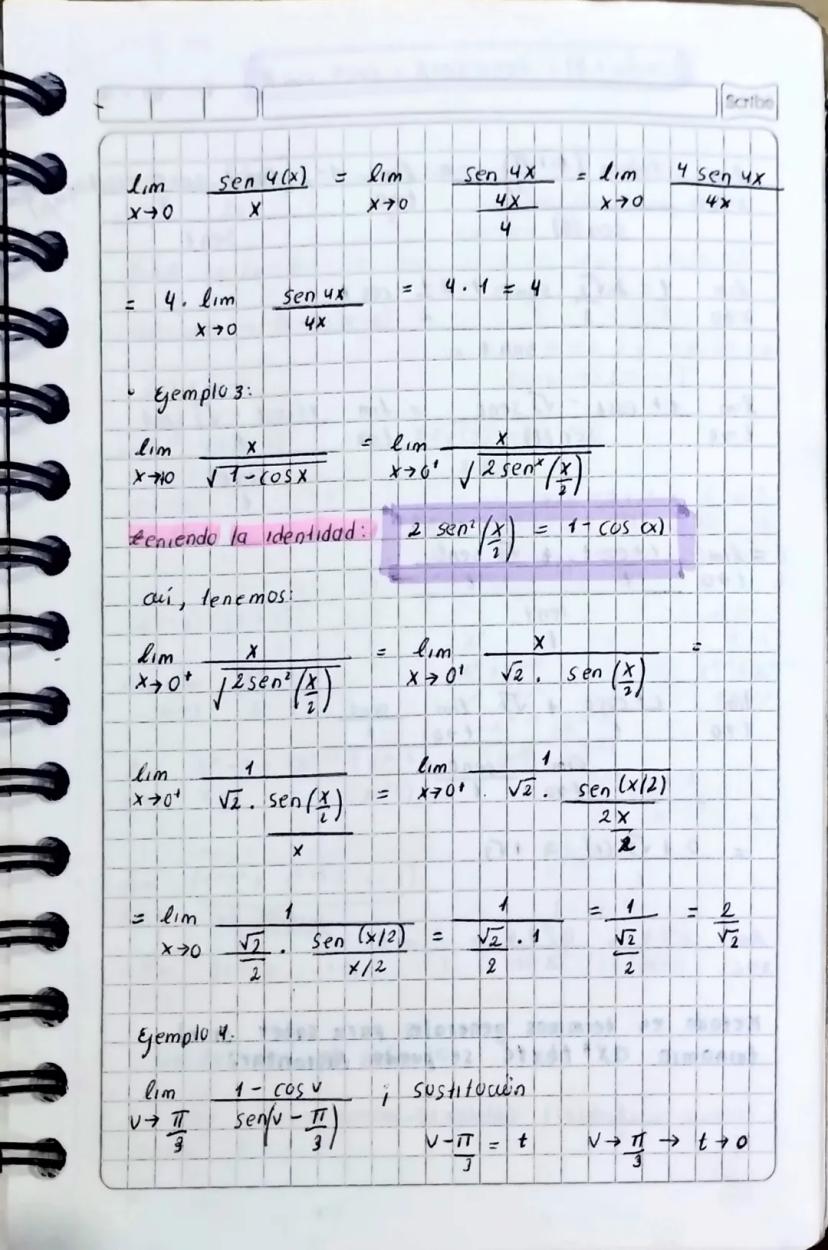 Scribe
lim x→0 sen 4(x)/x = lim x→0 sen 4x/(4x/4) = lim x→0 4 sen 4x/4x
= 4 · lim x→0 sen 4x/4x = 4 · 1 = 4
· Ejemplo 3:
lim x→0 x/√(1-cosx) = lim x→0⁺ x/√(2senˣ(x/2))
teniendo la identidad: 2 sen²(x/2) = 1 - cos (x)
aví, tenemos:
lim x→0⁺ x/√(2sen²(x/2)) = lim x→0⁺ x/(√2 · sen(x/2)) =
lim x→0⁺ 1/((√2 · sen(x/2))/x) = lim x→0⁺ 1/(√2 · sen(x/2)/(2x/2))
= lim x→0 1/(√2/2 · sen(x/2)/(x/2)) = 1/(√2/2 · 1) = 1/(√2/2) = 2/√2
Ejemplo 4.
lim v→π/3 (1 - cos v)/sen(v - π/3) ; sustitución
v - π/3 = t v→π/3 → t→0